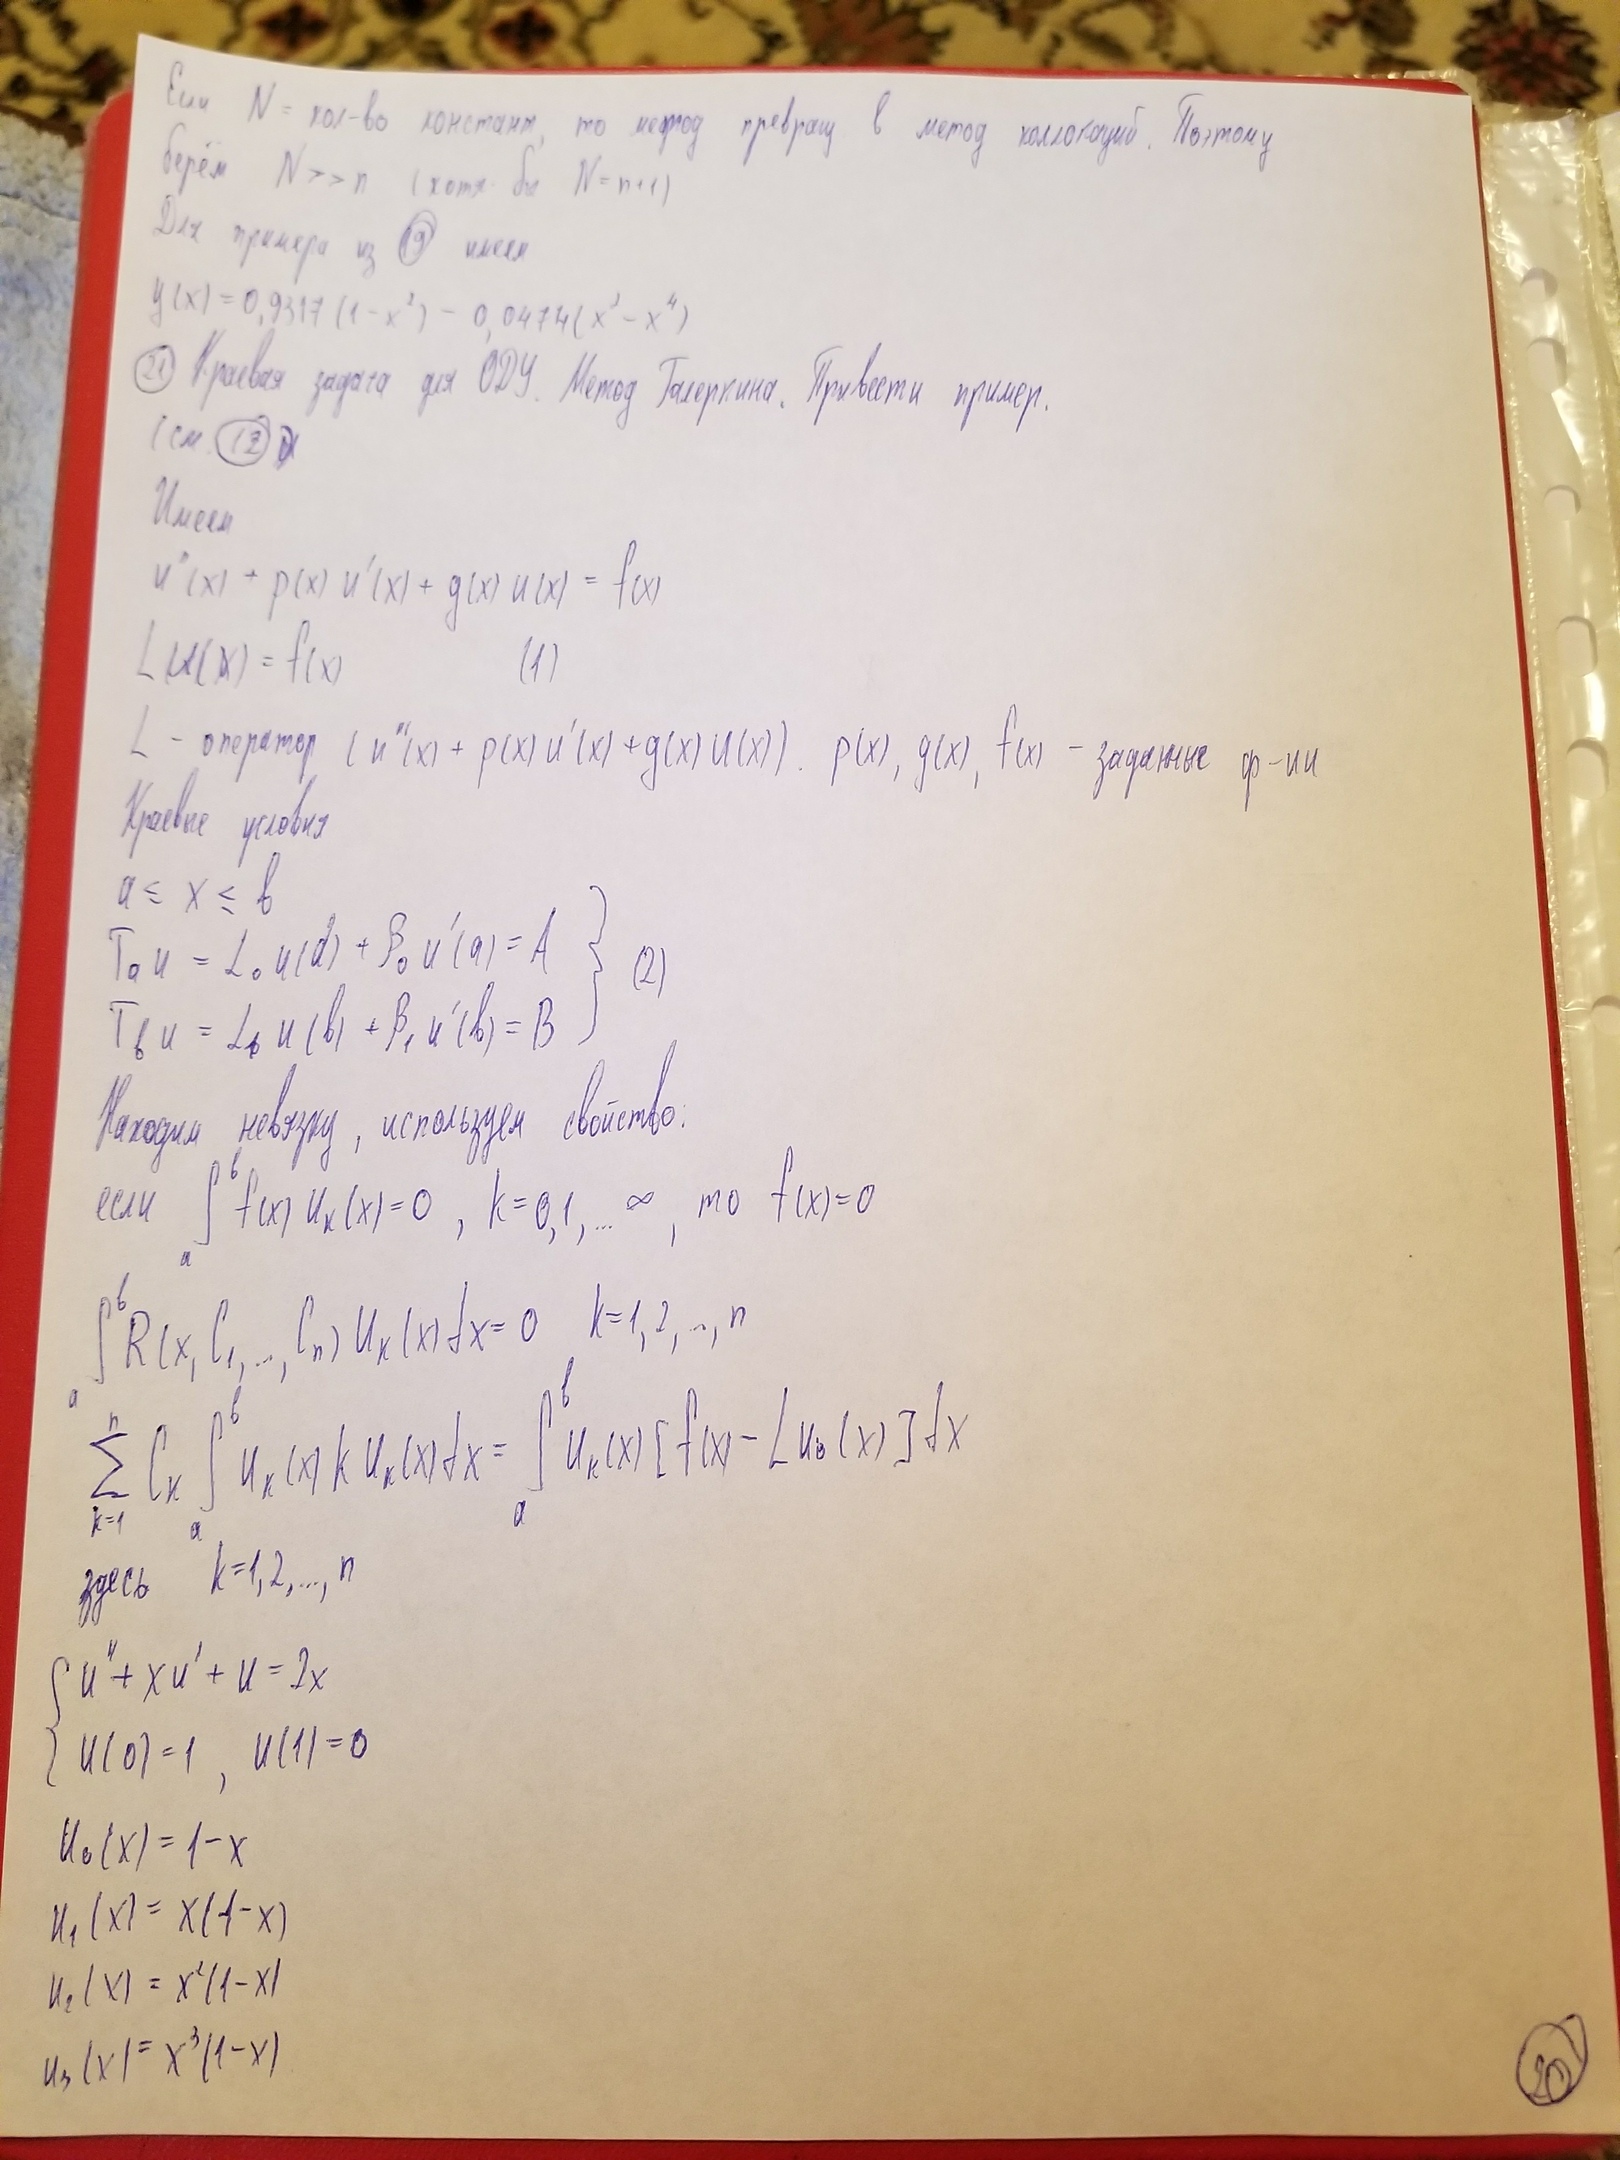 Если N = кол-во констант, то метод превращ. в метод коллокаций. Поэтому
берём N >> n (хотя бы N = n+1)
Для примера из (19) имеем
y(x) = 0,9317 (1 - x²) - 0,0474 (x² - x⁴)
(21) Краевая задача для ОДУ. Метод Галеркина. Привести пример.
(см. (12)
Имеем
u''(x) + p(x) u'(x) + g(x) u(x) = f(x)
L u(x) = f(x) (1)
L - оператор (u''(x) + p(x) u'(x) + g(x) u(x)). p(x), g(x), f(x) - заданные ф-ии
Краевые условия
a ≤ x ≤ b
Tₐ u = L₀ u(a) + β₀ u'(a) = A
(2)
T_b u = L₁ u(b) + β₁ u'(b) = B
Находим невязку, используем свойство:
если ∫ₐᵇ f(x) uₖ(x) = 0, k = 0,1,...∞, то f(x) = 0
∫ₐᵇ R(x, C₁, ..., Cₙ) uₖ(x) dx = 0 k = 1, 2, ..., n
∑ₖ₌₁ⁿ Cₖ ∫ₐᵇ uₖ(x) k uₖ(x) dx = ∫ₐᵇ uₖ(x) [f(x) - L u₀(x)] dx
здесь k = 1, 2, ..., n
{ u'' + x u' + u = 2x
u(0) = 1, u(1) = 0
u₀(x) = 1 - x
u₁(x) = x(1 - x)
u₂(x) = x²(1 - x)
u₃(x) = x³(1 - x)
20